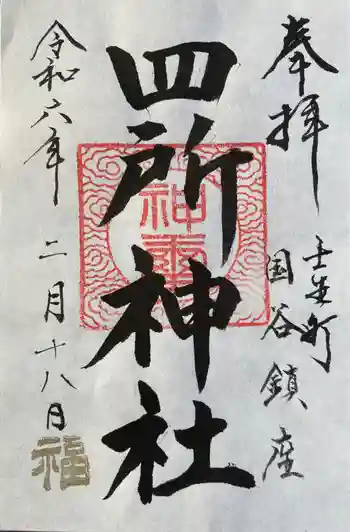 奉拝
壬生町
国谷鎮座
四所神社
令和六年
二月十八日
福